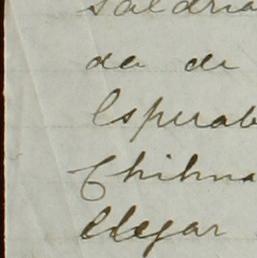 saldria
da de
Esperab
Chihua
llegar